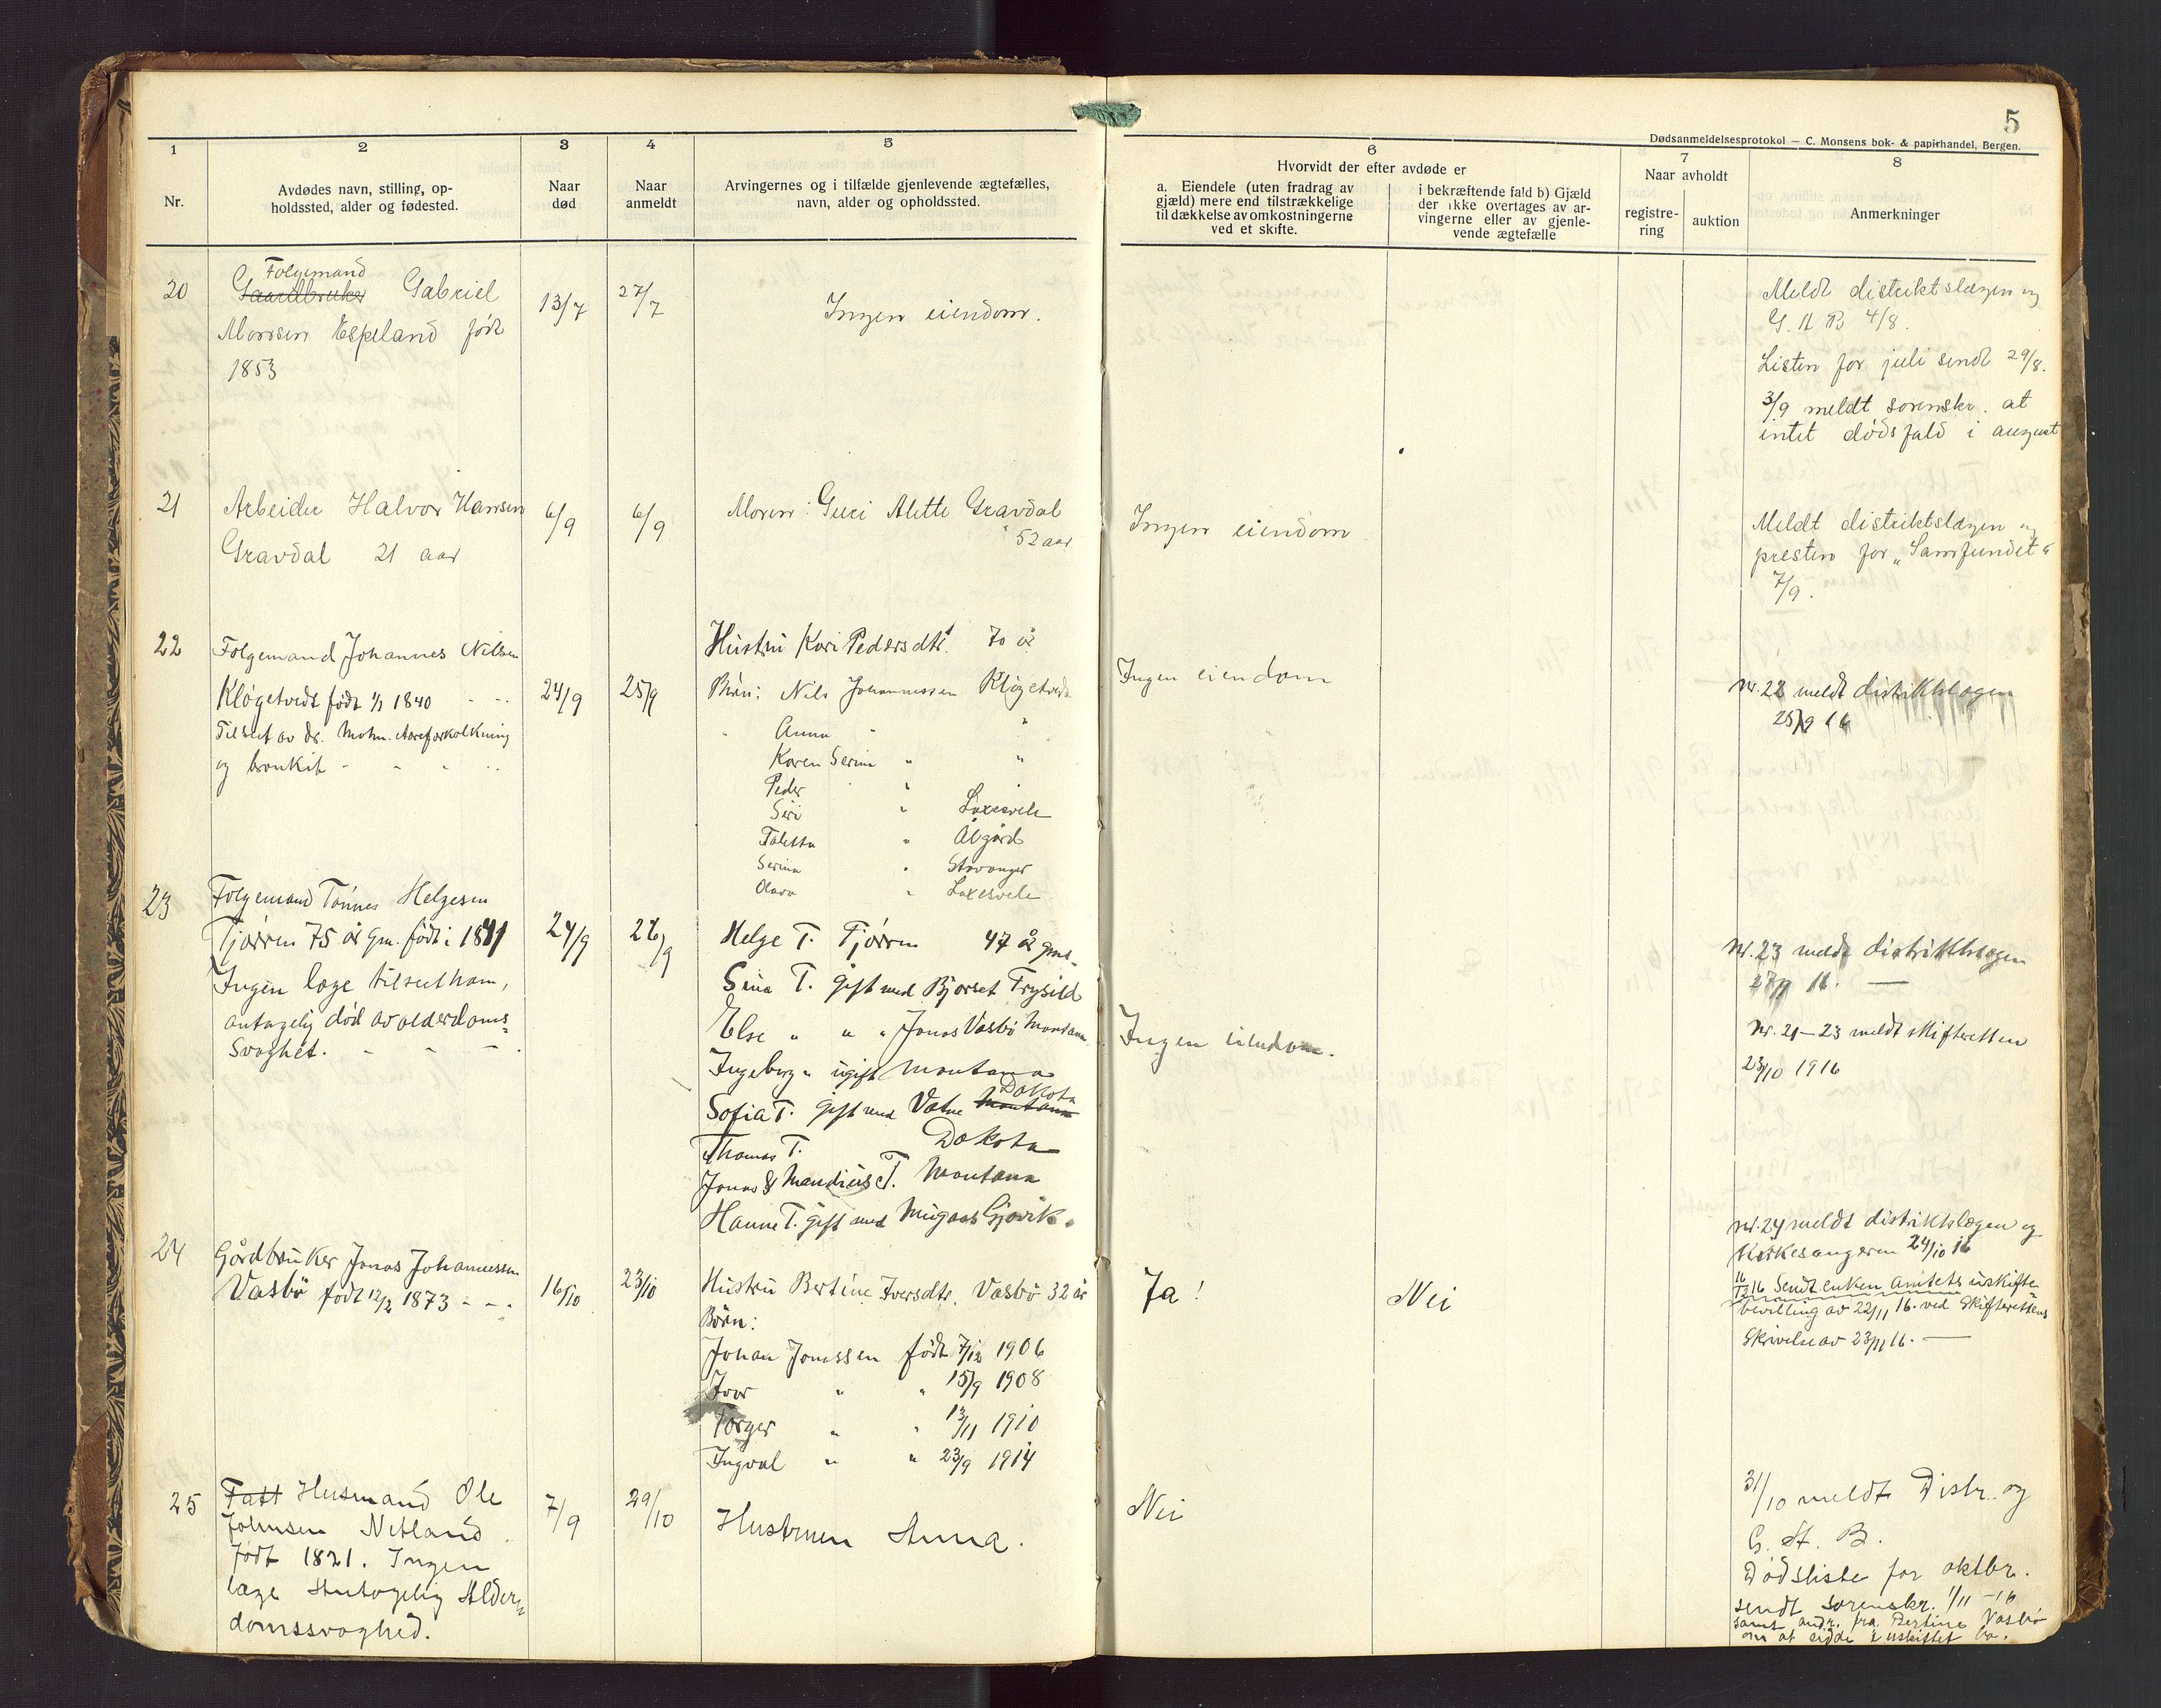 5
Dødsanmeldelsesprotokol — C. Monsens bok- & papirhandel, Bergen.
1
2
3
4
5
6
7
8
Nr.
Avdødes navn, stilling, op-
holdssted, alder og fødested.
Naar
død
Naar
anmeldt
Arvingernes og i tilfælde gjenlevende ægtefælles,
navn, alder og opholdssted.
Hvorvidt der efter avdøde er
a. Eiendele (uten fradrag av
gjæld) mere end tilstrækkelige
til dækkelse av omkostningerne
ved et skifte.
i bekræftende fald b) Gjæld
der ikke overtages av ar-
vingerne eller av gjenle-
vende ægtefælle
Naar avholdt
registre-
ring
auktion
Anmerkninger
20
Folgemand
Gaardbruker Gabriel
Monsen Espeland født
1853
13/7
27/7
Ingen eiendom.
Meldt distriktslægen og
G. A B 4/8.
Listen for juli sendt 29/8.
3/9 meldt sorenskr. at
intet dødsfald i august
21
Arbeider Halvor Hansen
Gravdal 21 aar
6/9
6/9
Moren: Guri Alette Gravdal
52 aar
Ingen eiendom
Meldt distriktslægen og
presten for "Samfundet"
7/9.
22
Folgemand Johannes Nilsen
Kløgetvedt født 1/1 1840
Tilset av dr. Mohn. Aareforkalkning
og bronkit
24/9
25/9
Hustru Kari Pedersdtr. 70 år
Børn: Nils Johannessen Kløgetvedt
Anna " "
Karen Serina " "
Peder "
Siri " Laxesvele
Taletta " Ålgård
Serina " Stavanger
Olava " Laxesvele
Ingen eiendom
Nr. 22 meldt distriktslægen
25/9 16
23
Folgemand Tønnes Helgesen
Tjørrn 75 år gm. født i 1841
Ingen læge tilset ham,
antagelig død av alderdoms-
svaghet.
24/9
26/9
Helge T. Tjørrn 47 år gml.
Sina T. gift med Bjorset Trysild
Else " " " Jonas Vasbø Montana
Ingeborg " ugift Montana
Dakota
Sofia T. gift med Vatne Montana
Thomas T. Dakota
Jonas & Mandius T. Montana
Hanne T. gift med Mugaas Gjøvik.
Ingen eiendom.
Nr. 23 meldt distriktslægen
27/9 16.
Nr. 21–23 meldt skifteretten
23/10 1916
24
Gårdbruker Jonas Johannessen
Vasbø født 12/2 1873
16/10
23/10
Hustru Bertine Iversdtr. Vasbø 32 år
Børn:
Johan Jonassen født 7/12 1906
Ivar " " 15/9 1908
Torger " " 13/11 1910
Ingval " " 23/9 1914
Ja!
Nei
Nr. 24 meldt distriktslægen og
Kirkesangeren 24/10 16
11/12 16 Sendt enken Amtets uskifte-
bevilling av 22/11 16. ved Skifterettens
Skrivelse av 23/11 16.
25
Fatt Husmand Ole
Johnsen Netland
født 1821. Ingen
læge Antagelig Alder-
domssvaghed.
7/9
29/10
Hustruen Anna.
Nei
31/10 meldt Distr. og
G. A. B.
Dødsliste for oktbr.
sendt sorenskr. 1/11 –16
samt andr. fra Bertine Vasbø
om at sidde i uskiftet bo.